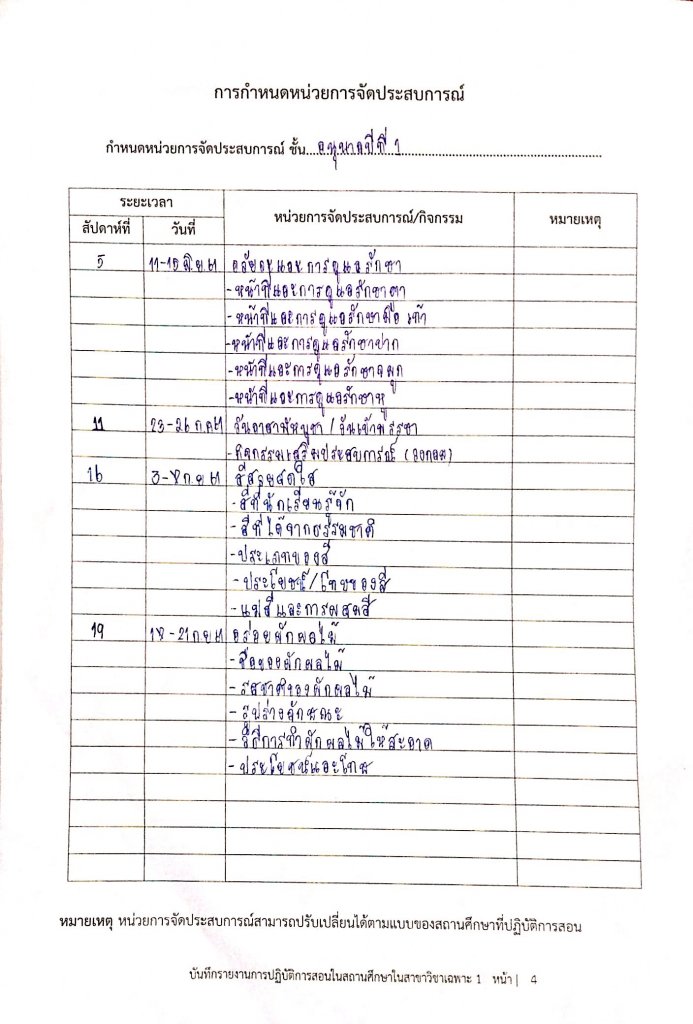 การกำหนดหน่วยการจัดประสบการณ์
กำหนดหน่วยการจัดประสบการณ์ ชั้น....อนุบาลปีที่ 1....
ระยะเวลา หน่วยการจัดประสบการณ์/กิจกรรม หมายเหตุ
สัปดาห์ที่ วันที่
5 11-15 มิ.ย 61 อวัยวะและการดูแลรักษา
-หน้าที่และการดูแลรักษาตา
-หน้าที่และการดูแลรักษามือ เท้า
-หน้าที่และการดูแลรักษาปาก
-หน้าที่และการดูแลรักษาจมูก
-หน้าที่และการดูแลรักษาหู
11 23-26 ก.ค 61 วันอาสาฬหบูชา / วันเข้าพรรษา
-กิจกรรมเสริมประสบการณ์ (วงกลม)
16 3-7 ก.ย 61 สีสวยสดใส
-สีที่นักเรียนรู้จัก
-สีที่ได้จากธรรมชาติ
-ประเภทของสี
-ประโยชน์/โทษของสี
-แม่สีและการผสมสี
19 18-21 ก.ย 61 อร่อยผักผลไม้
-ชื่อของผักผลไม้
-รสชาติของผักผลไม้
-รูปร่างลักษณะ
-วิธีการทำผักผลไม้ให้สะอาด
-ประโยชน์และโทษ
หมายเหตุ หน่วยการจัดประสบการณ์สามารถปรับเปลี่ยนได้ตามแบบของสถานศึกษาที่ปฏิบัติการสอน
บันทึกรายงานการปฏิบัติการสอนในสถานศึกษาในสาขาวิชาเฉพาะ 1 หน้า | 4